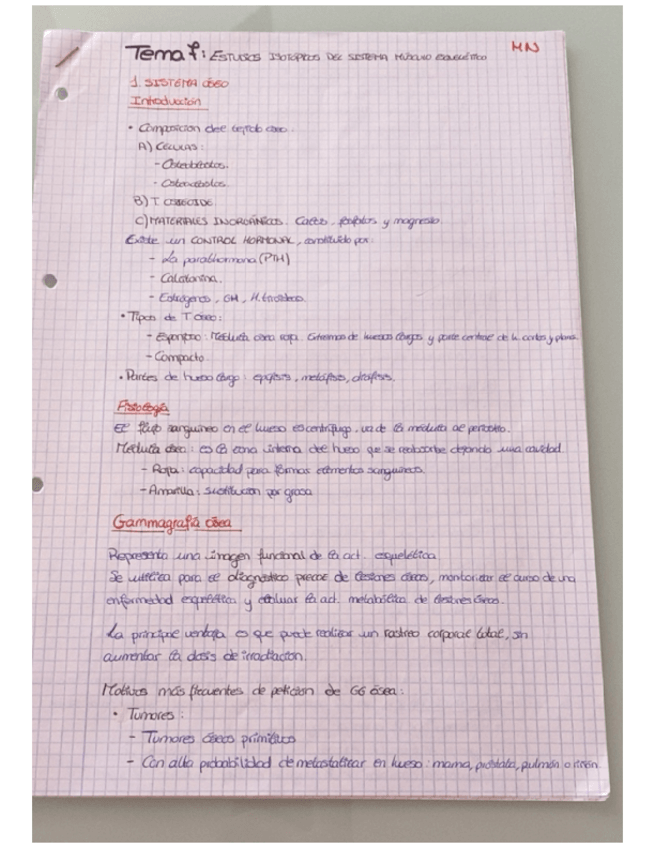 Tema 7: ESTUDIOS ISOTÓPICOS DEL SISTEMA MÚSCULO ESQUELÉTICO
MN
1. SISTEMA ÓSEO
Introducción
• Composición del tejido óseo.
A) CÉLULAS:
- Osteoblastos.
- Osteoclastos.
B) T OSTEOIDE
C) MATERIALES INORGÁNICOS. Calcio, fosfatos y magnesio.
Existe un CONTROL HORMONAL, constituido por:
- La parathormona (PTH)
- Calcitonina.
- Estrógenos, GM, H. tiroideas.
• Tipos de T óseo:
- Esponjoso: Médula ósea roja. Extremos de huesos largos y parte central de los cortos y planos.
- Compacto.
• Partes de hueso largo: epífisis, metáfisis, diáfisis.
Fisiología
El flujo sanguíneo en el hueso es centrífugo, va de la médula al periostio.
Médula ósea: es la zona interna del hueso que se reabsorbe dejando una cavidad.
- Roja: capacidad para formar elementos sanguíneos.
- Amarilla: sustitución por grasa
Gammagrafía ósea
Representa una imagen funcional de la act. esquelética.
Se utiliza para el diagnóstico precoz de lesiones óseas, monitorizar el curso de una
enfermedad esquelética y evaluar la act. metabólica de lesiones óseas.
La principal ventaja es que puede realizar un rastreo corporal total, sin
aumentar la dosis de irradiación.
Motivos más frecuentes de petición de GG ósea:
• Tumores:
- Tumores óseos primitivos
- Con alta probabilidad de metastatizar en hueso: mama, próstata, pulmón o riñón